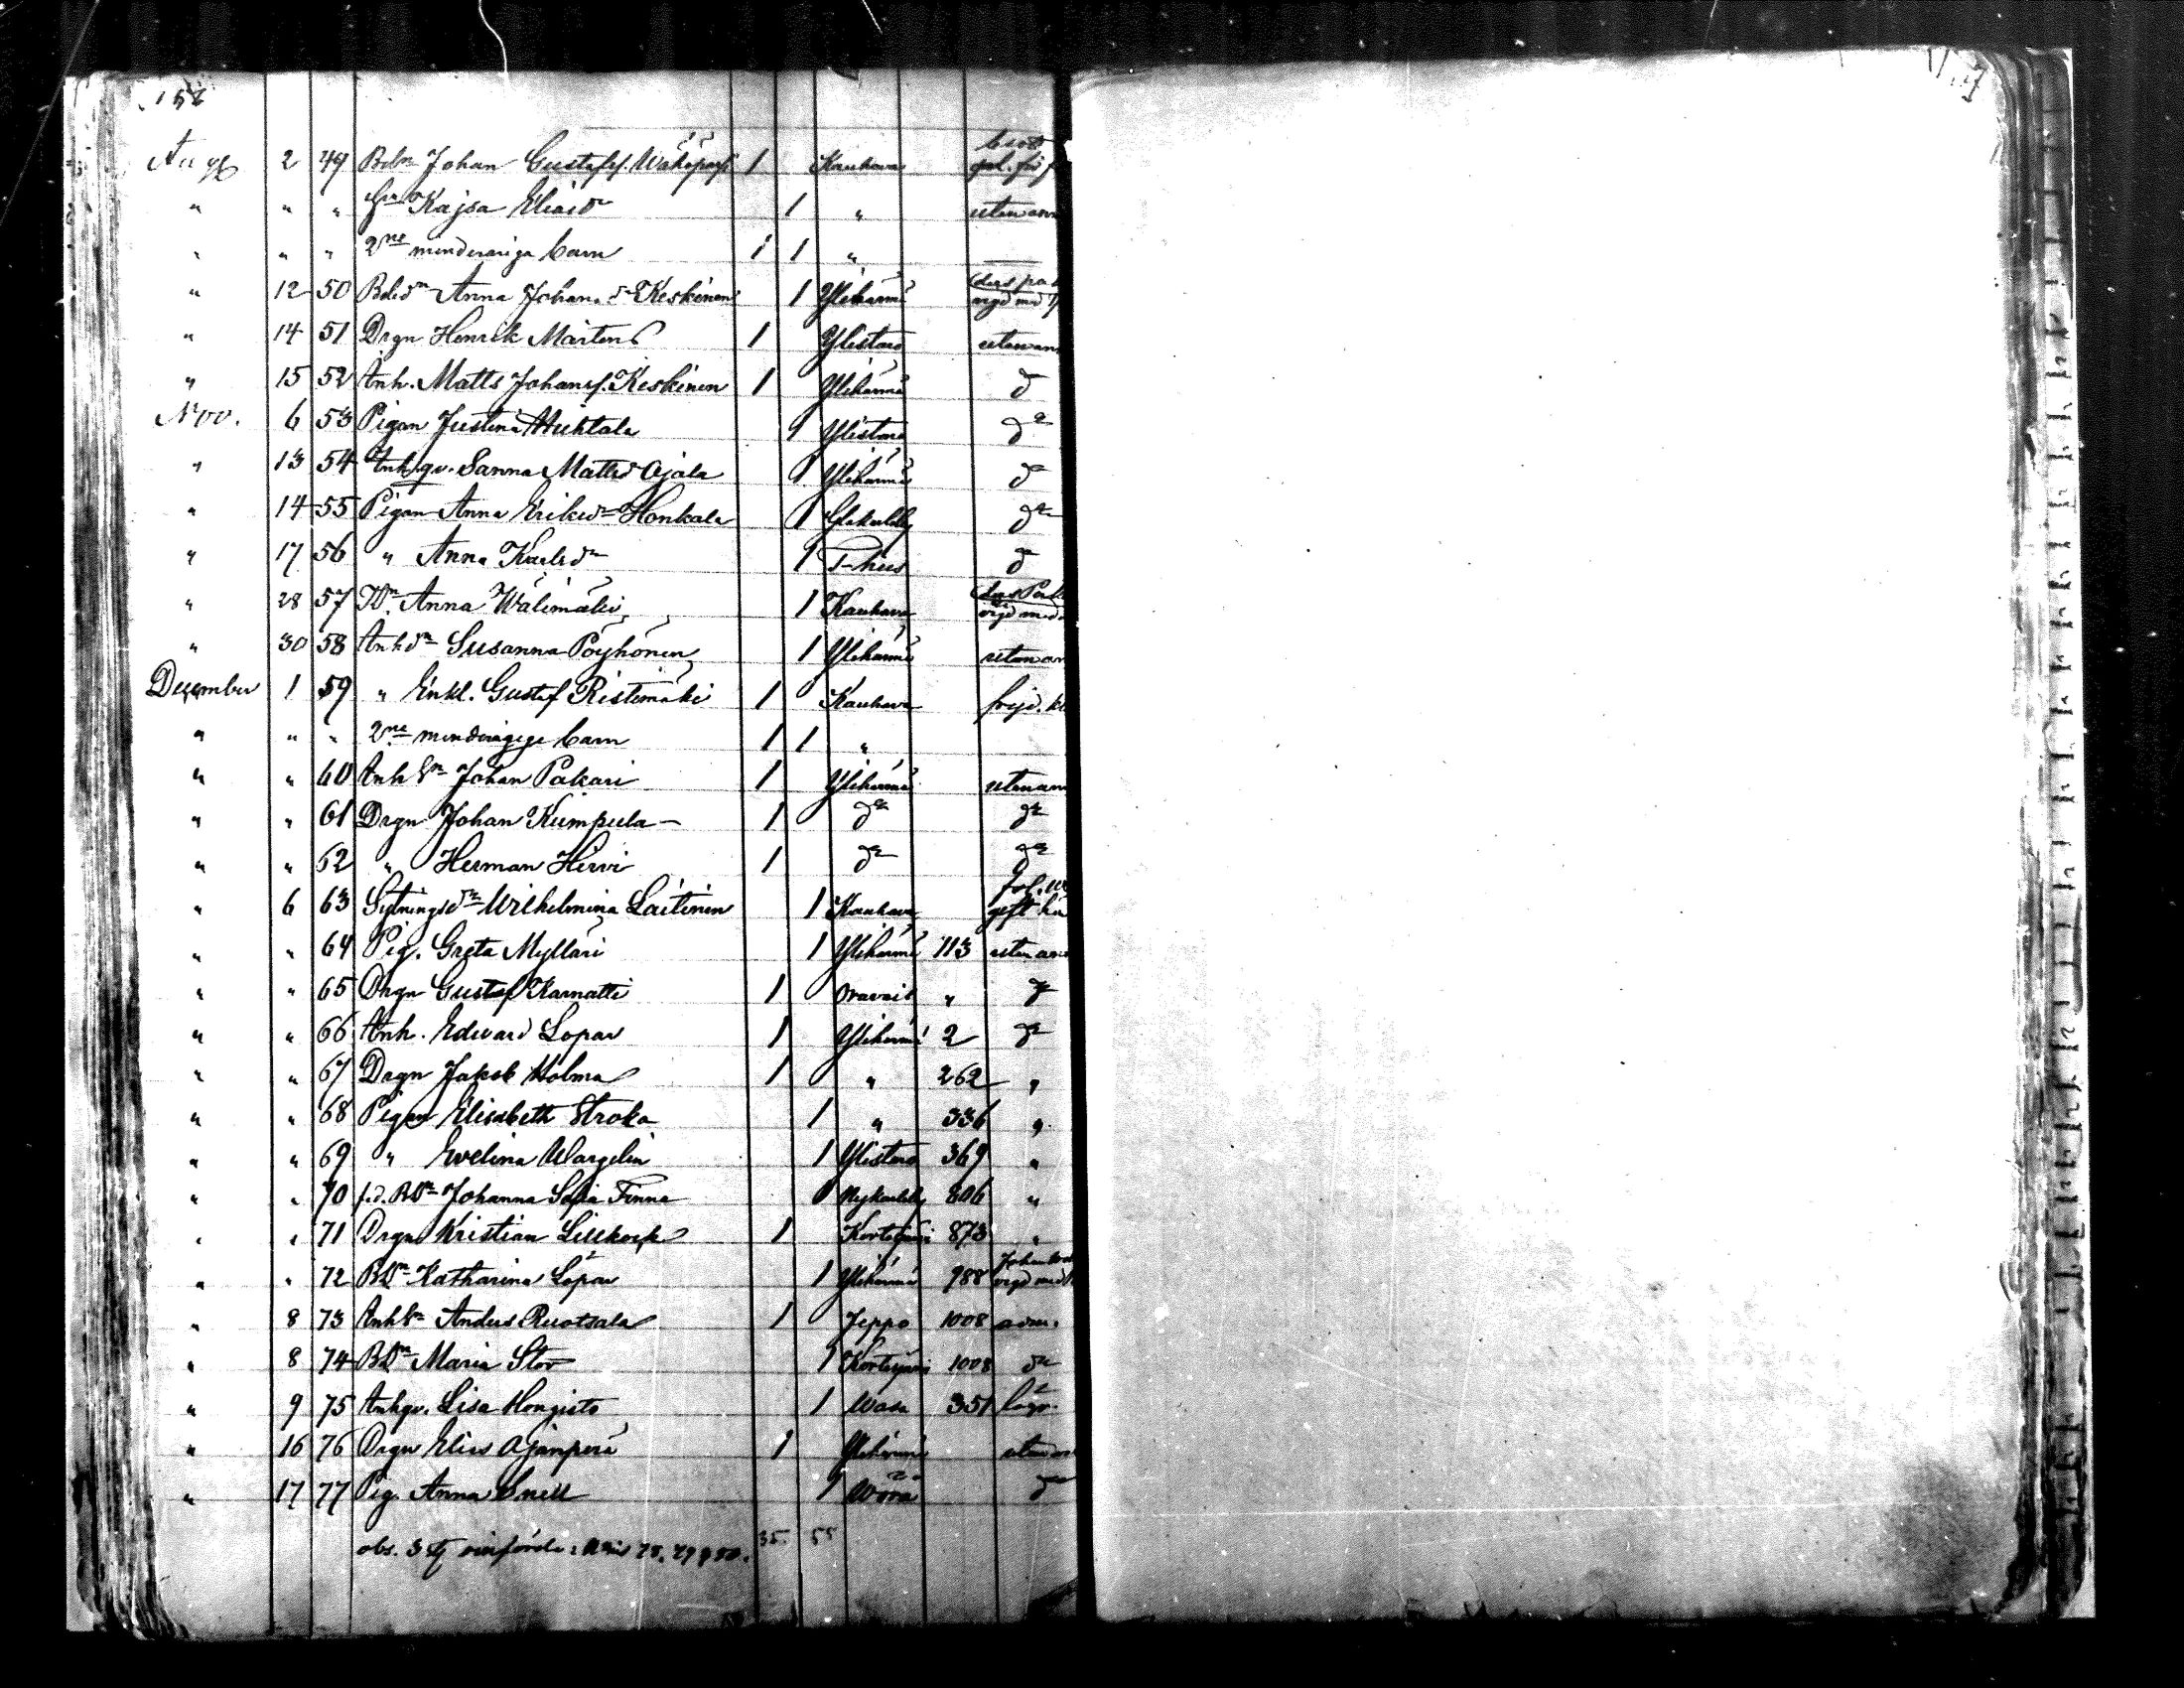 156
Aug 2 49 Bdn Johan Gustafss. Wähäpassi 1 Kauhava
" " " hu Kajsa Eliasdr 1 "
" " " 2ne minderåriga barn 1 1 "
" 12 50 Bdedr Anna Johansdr Keskinen 1 Ylihärmä
" 14 51 Drgn Henrik Mårtens 1 Ylistaro utan an
" 15 52 Inh. Matts Johanss. Keskinen 1 Ylihärmä do
Nov. 6 53 Pigan Justina Huhtala 1 Ylistaro do
" 13 54 Inh.qv. Sanna Mattsdr Ojala 1 Ylihärmä do
" 14 55 Pigan Anna Eriksdr Honkala 1 Glakarleby do
" 17 56 " Anna Karlsdr 1 do
" 28 57 Anna Wälimäki 1 Kauhava
" 30 58 Inhdr Susanna Pöyhönen 1 Ylihärmä utan an
December 1 59 " Enkl. Gustaf Ristimäki 1 Kauhava
" " " 2ne minderåriga barn 1 1 "
" " 60 Inh Sn Johan Pakari 1 Ylihärmä utan an
" " 61 Drgn Johan Kumpula 1 do do
" " 62 " Herman Hirvi 1 do do
" 6 63 Sytningsdr Wilhelmina Laitinen 1 Kauhava gift
" " 64 Pig. Greta Mylläri 1 Ylihärmä 113 utan an
" " 65 Drgn Gustaf Karnatti 1 Oravais " do
" " 66 Inh. Edward Lopar 1 Ylihärmä 2 do
" " 67 Drgn Jakob Holma 1 " 262 "
" " 68 Pigan Elisabeth Stroka 1 " 336 "
" " 69 " Evelina Wargelin 1 Ylistaro 369 "
" " 70 f.d. Bdr Johanna Sofia Finne 1 Nykarleby 806 "
" " 71 Drgn Kristian Lillkock 1 Kortesjärvi 873 "
" " 72 Bdr Katharina Lopar 1 Ylihärmä 988
" 8 73 Inh Sn Anders Ruotsala 1 Jeppo 1008
" 8 74 Bdr Maria Stor 1 Kortesjärvi 1008 do
" 9 75 Inhqv. Lisa Hongisto 1 Wasa 351
" 16 76 Drgn Elias Ojanperä 1 Ylihärmä utan an
" 17 77 Pig. Anna Snell 1 Wörå do
obs. 3 ej införde 35. 55